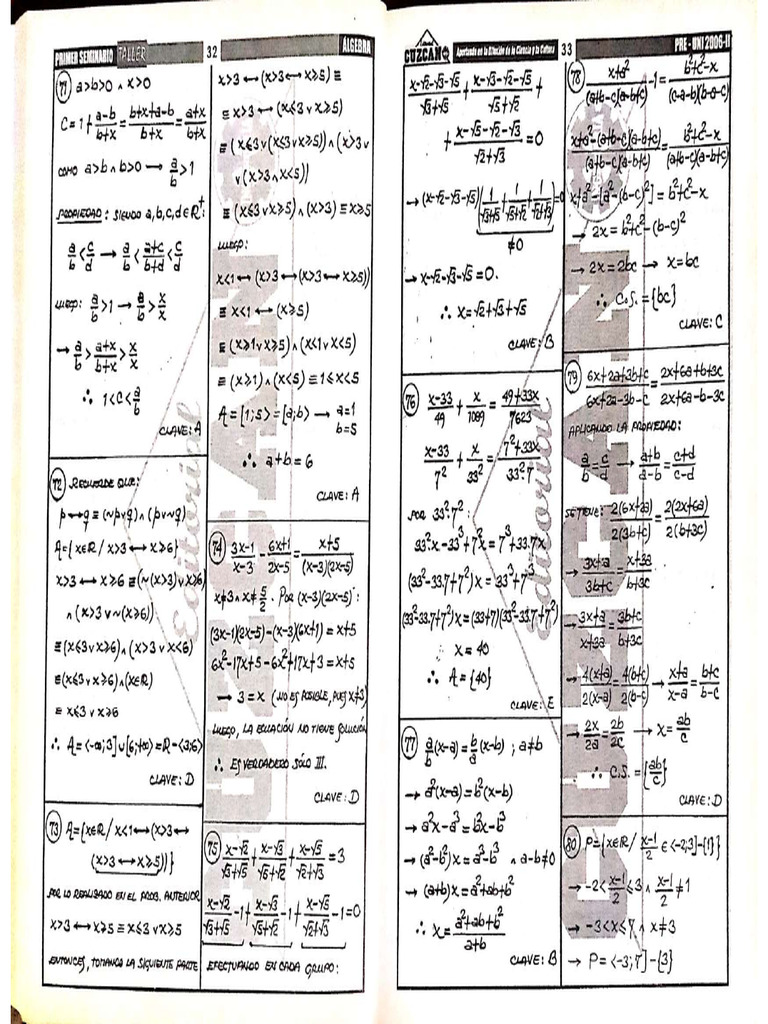 PRIMER SEMINARIO TALLER 32 ÁLGEBRA
71 a>b>0 ∧ x>0
C = 1 + (a-b)/(b+x) = (b+x+a-b)/(b+x) = (a+x)/(b+x)
COMO a>b ∧ b>0 → a/b > 1
PROPIEDAD: SIENDO a,b,c,d∈R⁺:
a/b < c/d → a/b < (a+c)/(b+d) < c/d
LUEGO: a/b > 1 → a/b > x/x
→ a/b > (a+x)/(b+x) > x/x
∴ 1 < C < a/b
CLAVE: A
72 RECUERDE QUE:
p ↔ q ≡ (~p∨q) ∧ (p∨~q)
A={x∈R / x>3 ↔ x≥6}
x>3 ↔ x≥6 ≡ (~(x>3) ∨ x≥6)
∧ (x>3 ∨ ~(x≥6))
≡ (x≤3 ∨ x≥6) ∧ (x>3 ∨ x<6)
≡ (x≤3 ∨ x≥6) ∧ (x∈R)
≡ x≤3 ∨ x≥6
∴ A = <-∞; 3] ∪ [6; +∞> = R - <3;6>
CLAVE: D
73 A={x∈R / x<1 ↔ (x>3 ↔
(x>3 ↔ x≥5))}
POR LO REALIZADO EN EL PROB. ANTERIOR
x>3 ↔ x≥5 ≡ x≤3 ∨ x≥5
ENTONCES, TOMANDO LA SIGUIENTE PARTE
x>3 ↔ (x>3 ↔ x≥5) ≡
≡ x>3 ↔ (x≤3 ∨ x≥5)
≡ (x≤3 ∨ (x≤3 ∨ x≥5)) ∧ (x>3 ∨
∨ (x>3 ∧ x<5))
≡ (x≤3 ∨ x≥5) ∧ (x>3) ≡ x≥5
LUEGO:
x<1 ↔ (x>3 ↔ (x>3 ↔ x≥5))
≡ x<1 ↔ (x≥5)
≡ (x≥1 ∨ x≥5) ∧ (x<1 ∨ x<5)
≡ (x≥1) ∧ (x<5) ≡ 1≤x<5
A = [1; 5> = [a; b> → a=1
b=5
∴ a+b = 6
CLAVE: A
74 (3x-1)/(x-3) - (6x+1)/(2x-5) = (x+5)/((x-3)(2x-5))
x≠3 ∧ x≠5/2. POR (x-3)(2x-5):
(3x-1)(2x-5) - (x-3)(6x+1) = x+5
6x²-17x+5-6x²+17x+3 = x+5
→ 3 = x (NO ES POSIBLE, PUES x≠3)
LUEGO, LA ECUACIÓN NO TIENE SOLUCIÓN
∴ ES VERDADERO SÓLO III.
CLAVE: D
75 (x-√2)/(√3+√5) + (x-√3)/(√5+√2) + (x-√5)/(√2+√3) = 3
(x-√2)/(√3+√5) - 1 + (x-√3)/(√5+√2) - 1 + (x-√5)/(√2+√3) - 1 = 0
EFECTUANDO EN CADA GRUPO:
CUZCANO Aportando en la Difusión de la Ciencia y la Cultura 33 PRE - UNI 2006-II
(x-√2-√3-√5)/(√3+√5) + (x-√3-√2-√5)/(√5+√2) +
+ (x-√5-√2-√3)/(√2+√3) = 0
→ (x-√2-√3-√5)(1/(√3+√5) + 1/(√5+√2) + 1/(√2+√3)) = 0
≠0
→ x-√2-√3-√5 = 0.
∴ x = √2+√3+√5
CLAVE: B
76 (x-33)/49 + x/1089 = (49+33x)/7623
(x-33)/7² + x/33² = (7²+33x)/(33².7)
POR 33².7²:
33².x - 33³ + 7²x = 7³ + 33.7x
(33²-33.7+7²)x = 33³+7³
(33²-33.7+7²)x = (33+7)(33²-33.7+7²)
x = 40
∴ A = {40}
CLAVE: E
77 a/b (x-a) = b/a (x-b) ; a≠b
→ a²(x-a) = b²(x-b)
→ a²x-a³ = b²x-b³
→ (a²-b²)x = a³-b³ ∧ a-b≠0
→ (a+b)x = a²+ab+b²
∴ x = (a²+ab+b²)/(a+b)
CLAVE: B
78 (x+a²)/((a+b-c)(a-b+c)) - 1 = (b²+c²-x)/((c-a-b)(b-a-c))
(x+a²-(a+b-c)(a-b+c))/((a+b-c)(a-b+c)) = (b²+c²-x)/((a+b-c)(a-b+c))
x+a²-[a²-(b-c)²] = b²+c²-x
→ 2x = b²+c²-(b-c)²
→ 2x = 2bc → x = bc
∴ C.S. = {bc}
CLAVE: C
79 (6x+2a+3b+c)/(6x+2a-3b-c) = (2x+6a+b+3c)/(2x+6a-b-3c)
APLICANDO LA PROPIEDAD:
a/b = c/d → (a+b)/(a-b) = (c+d)/(c-d)
SE TIENE: 2(6x+2a)/2(3b+c) = 2(2x+6a)/2(b+3c)
→ (3x+a)/(3b+c) = (x+3a)/(b+3c)
→ (3x+a)/(x+3a) = (3b+c)/(b+3c)
→ 4(x+a)/2(x-a) = 4(b+c)/2(b-c) → (x+a)/(x-a) = (b+c)/(b-c)
→ 2x/2a = 2b/2c → x = ab/c
∴ C.S. = {ab/c}
CLAVE: D
80 P={x∈R / (x-1)/2 ∈ <-2;3]-{1}}
→ -2 < (x-1)/2 ≤ 3 ∧ (x-1)/2 ≠ 1
→ -3 < x ≤ 7 ∧ x≠3
→ P = <-3; 7] - {3}
Editorial CUZCANO
Editorial CUZCANO